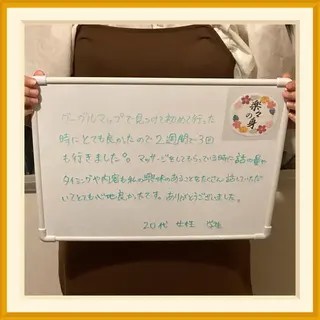 グーグルマップで見つけて初めて行った
時にとても良かたので2週間で3回
も行きました。マッサージをしてもらっている時に話の量や
タイミングや内容も私の興味のあることをたくさん話していただ
いてとても心地良かたです。ありがとうございました。
20代 女性 学生
楽々
の身